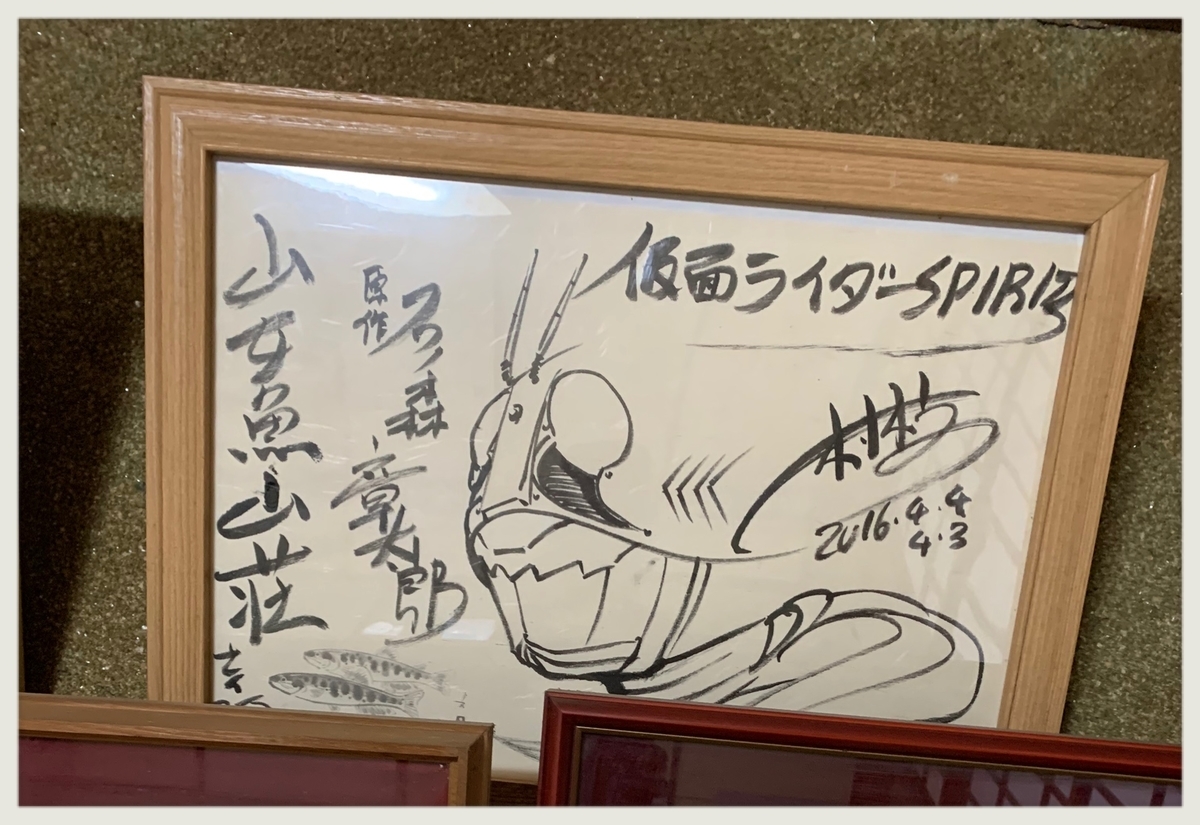 仮面ライダーSPIRITS
村枝
2016.4.4
4.3
原作
石森章太郎
山女魚山荘